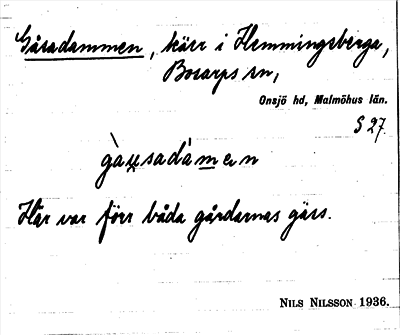 Gåsadammen, kärr i Hemmingsberga,
Bosarps sn,
Onsjö hd, Malmöhus län.
S 27.
Här var förr båda gårdarnas gäss.
NILS NILSSON 1936.